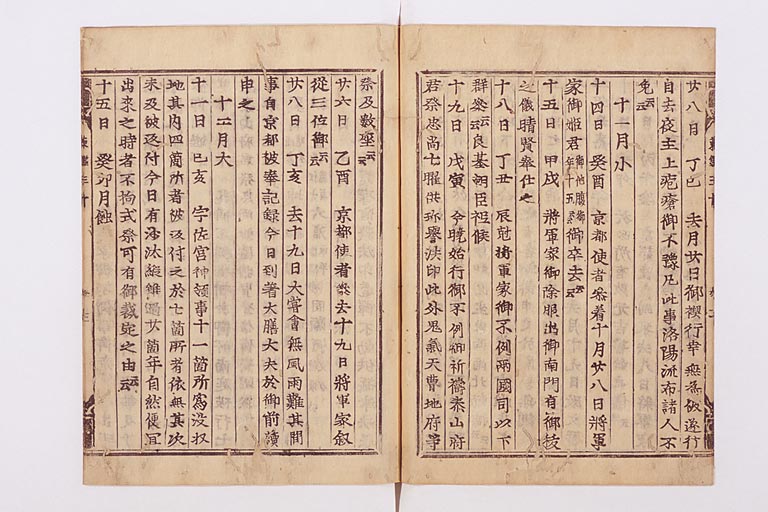 廿八日 丁巳 去月廿日御禊行幸無為被遂行
自去夜主上疱瘡御不豫凡此事洛陽流布諸人不
免云云
十一月小
十四日 癸酉 京都使者参着十月廿八日将軍
家御姫君年十五 御卒去云云
十五日 甲戌 将軍家御除服出御南門有御秡
之儀晴賢奉仕之
十八日 丁丑 辰尅将軍家御不例両國司以下
群参云云良基朝臣祗候
十九日 戊寅 今暁始行御不例御祈祷泰山府
君祭忠尚七曜供珍譽法印此外鬼氣天曹地府等
祭及数座云云
廿六日 乙酉 京都使者参去十九日将軍家叙
従三位御云云
廿八日 丁亥 去十九日大嘗會無風雨難其間
事自京都被奉記録今日到著大膳大夫於御前讀
申之
十二月大
十一日 己亥 宇佐宮神領事十一箇所寫没収
地其内四箇所者被返付之於七箇所者依無其次
未及被返付今日有沙汰縦雖過廿箇年自然便冝
出来之時者不拘式祭可有御裁定之由云云
十五日 癸卯月蝕